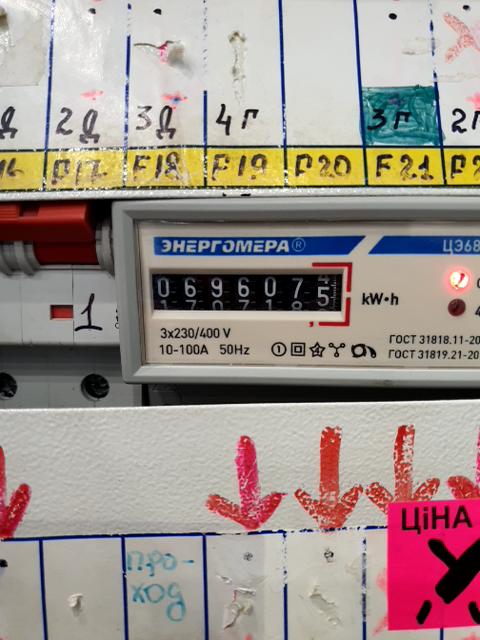 2Д 3Д 4Г 3Г
F17 F18 F19 F20 F21
ЭНЕРГОМЕРА®
ЦЭ68
0696075
kW•h
1
3x230/400 V
10-100A 50Hz
ГОСТ 31818.11-20
ГОСТ 31819.21-20
ЦіНА
ПРО-
ХОД